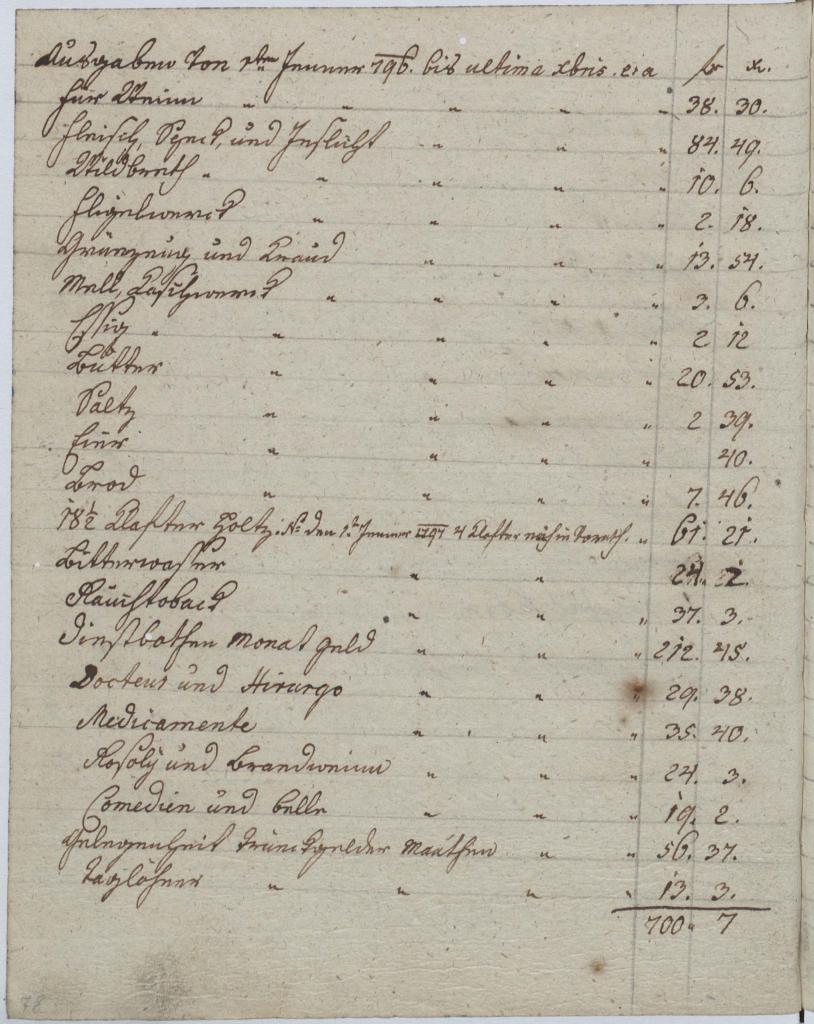 Ausgaben von 1ten Jenner 796. bis ultima xbris. e: a fr xr.
für Wein " " " " 38. 30.
Fleisch, Speck, und Inslicht " " " 84. 49.
Wildbreth " " " " " 10. 6.
Fligelwerck " " " " 2. 18.
Grünzeug und Kraud " " " 13. 54.
Mell, Kuchlwerck " " " " 3. 6.
Essig " " " " " 2 12
Butter " " " " 20. 53.
Saltz " " " " 2 39.
Eÿer " " " " 40.
Brod " " " " 7. 46.
18½ Klafter Holtz. Nb den 1t Jenner 1797 4 Klafter noch in Vorath. " 61. 21.
Bitterwasser " " 24. 2.
Rauchtoback " " " 37. 3.
Dienstbothen Monat geld " " " 212. 45.
Docteur und Hirurgo " " " 29. 38.
Medicamente " " " 35. 40.
Rosoly und Brandwein " " " 24. 3.
Comedien und Belle " " " 19. 2.
Gelegenheit Trunckgelder Mauthen " " 56. 37.
Taglöhner " " " " 13. 3.
700 " 7
78